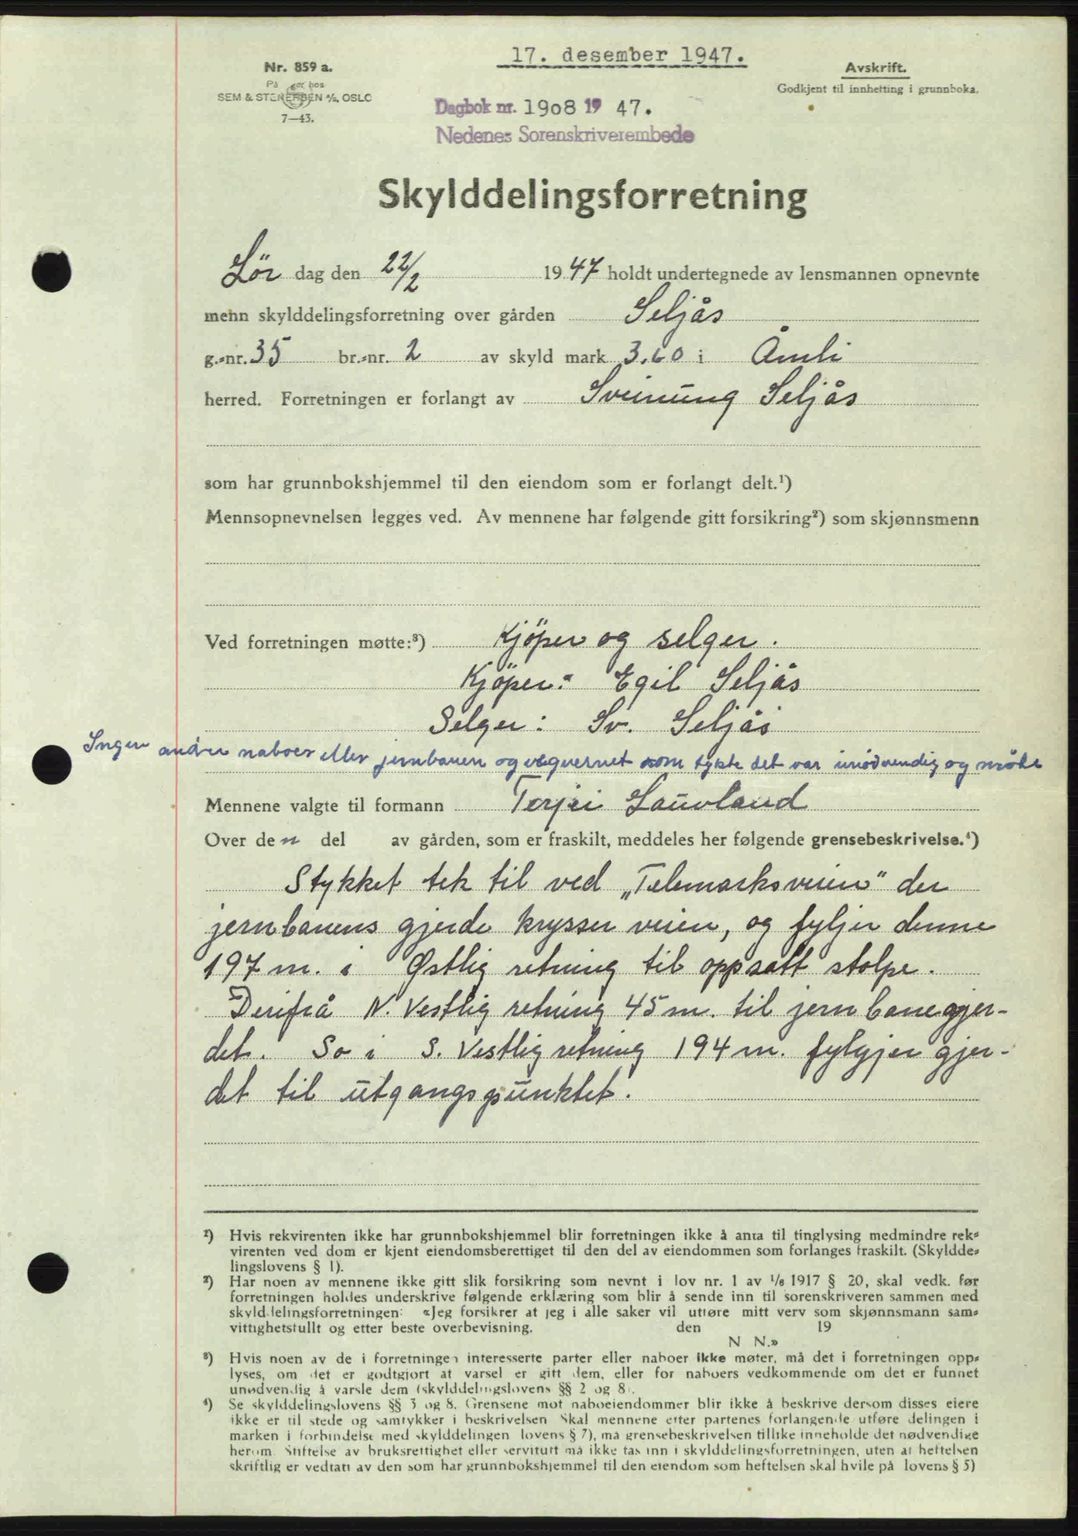 17. desember 1947.
Nr. 859 a.
På hos
SEM & STENERSEN A/S, OSLO
7—43.
Avskrift.
Godkjent til innhefting i grunnboka.
Dagbok nr. 1908 19 47.
Nedenes Sorenskriverembede
Skylddelingsforretning
Lør dag den 22/2 1947 holdt undertegnede av lensmannen opnevnte
menn skylddelingsforretning over gården Seljås
g.-nr. 35 br.-nr. 2 av skyld mark 3.60 i Åmli
herred. Forretningen er forlangt av Sveinung Seljås
som har grunnbokshjemmel til den eiendom som er forlangt delt.¹)
Mennsopnevnelsen legges ved. Av mennene har følgende gitt forsikring²) som skjønnsmenn
Ved forretningen møtte:³) Kjöper og selger.
Kjöper: Egil Seljås
Selger: Sv. Seljås
Ingen andre naboer eller jernbanen og vegvernet som tykte det var unödvendig og möte
Mennene valgte til formann Terjei Lauvland
Over den del av gården, som er fraskilt, meddeles her følgende grensebeskrivelse.⁴)
Stykket tek til ved „Telemarksveien" der
jernbanens gjerde krysser veien, og fyljer denne
197 m. i Østlig retning til oppsatt stolpe.
Derifrå N. Vestlig retning 45 m. til jernbanegjer-
det. So i S. Vestlig retning 194 m. fylgjer gjer-
det til utgangspunktet.
¹) Hvis rekvirenten ikke har grunnbokshjemmel blir forretningen ikke å anta til tinglysing medmindre rek-
virenten ved dom er kjent eiendomsberettiget til den del av eiendommen som forlanges fraskilt. (Skyldde-
lingslovens § 1).
²) Har noen av mennene ikke gitt slik forsikring som nevnt i lov nr. 1 av 1/6 1917 § 20, skal vedk. før
forretningen holdes underskrive følgende erklæring som blir å sende inn til sorenskriveren sammen med
skylddelingsforretningen: «Jeg forsikrer at jeg i alle saker vil utføre mitt verv som skjønnsmann sam-
vittighetsfullt og etter beste overbevisning. den 19
N N.»
³) Hvis noen av de i forretningen interesserte parter eller naboer ikke møter, må det i forretningen opp-
lyses, om det er godtgjort at varsel er gitt dem, eller for naboers vedkommende om det er funnet
unødvendig å varsle dem (skylddelingslovens §§ 2 og 8).
⁴) Se skylddelingslovens §§ 3 og 8. Grensene mot naboeiendommer blir ikke å beskrive dersom disses eiere
ikke er til stede og samtykker i beskrivelsen Skal mennene etter partenes forlangende utføre delingen i
marken i forbindelse med skylddelingen lovens § 7), må grensebeskrivelsen tillike inneholde det nødvendige
herom. Stiftelse av bruksrettighet eller servitutt må ikke tas inn i skylddelingsforretningen, uten at heftelsen
skriftlig er vedtatt av den som har grunnbokshjemmel til den eiendom som heftelsen skal hvile på lovens § 5)